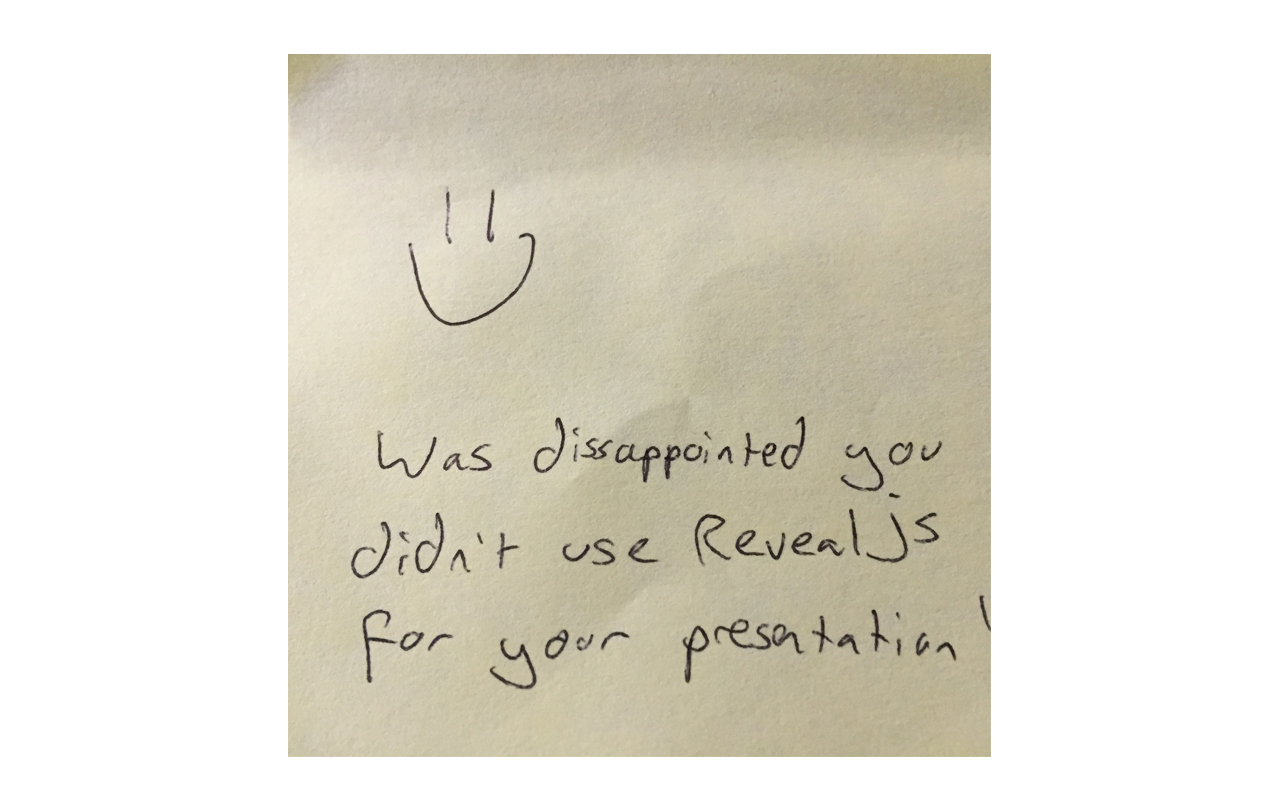 Was dissappointed you
didn't use Revealjs
for your presentation!